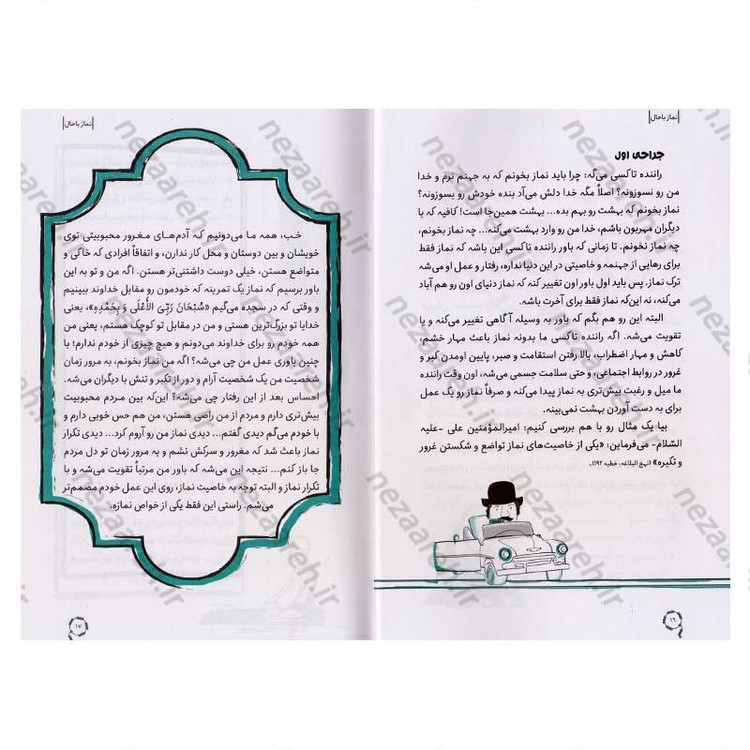 نماز باحال
جراحی اول
راننده تاکسی می‌گه: چرا باید نماز بخونم که به جهنم نرم و خدا
من رو نسوزونه؟ اصلاً مگه خدا دلش می‌آد بنده خودش رو بسوزونه؟
نماز بخونم که بهشت رو بهم بده... بهشت همین‌جا است! کافیه که با
دیگران مهربون باشم، خدا من رو وارد بهشت می‌کنه... چه نماز بخونم،
چه نماز نخونم. تا زمانی که باور راننده تاکسی این باشه که نماز فقط
برای رهایی از جهنمه و خاصیتی در این دنیا نداره، رفتار و عمل او می‌شه
ترک نماز. پس باید اول باور اون تغییر کنه که نماز دنیای اون رو هم آباد
می‌کنه، نه این‌که نماز فقط برای آخرت باشه.
البته این رو هم بگم که باور به وسیله آگاهی تغییر می‌کنه و یا
تقویت می‌شه. اگه راننده تاکسی ما بدونه نماز باعث مهار خشم،
کاهش و مهار اضطراب، بالا رفتن استقامت و صبر، پایین اومدن کبر و
غرور در روابط اجتماعی، و حتی سلامت جسمی می‌شه، اون وقت راننده
ما میل و رغبت بیش‌تری به نماز پیدا می‌کنه و صرفاً نماز رو یک عمل
برای به دست آوردن بهشت نمی‌بینه.
بیا یک مثال رو با هم بررسی کنیم: امیرالمؤمنین علی -علیه
السّلام- می‌فرماین: «یکی از خاصیت‌های نماز تواضع و شکستن غرور
و تکبره» (نهج البلاغه، خطبه ۱۹۲).
۱۶
نماز باحال
خب، همه ما می‌دونیم که آدم‌های مغرور محبوبیتی توی
خویشان و بین دوستان و محل کار ندارن، و اتفاقاً افرادی که خاکی و
متواضع هستن، خیلی دوست داشتنی‌تر هستن. اگه من و تو به این
باور برسیم که نماز یک تمرینه که خودمون رو مقابل خداوند ببینیم
و وقتی که در سجده می‌گیم «سُبْحَانَ رَبِّيَ الأَعْلَى وَ بِحَمْدِهِ»، یعنی
خدایا تو بزرگ‌ترین هستی و من در مقابل تو کوچک هستم، یعنی من
همه خودم رو برای خداوند می‌دونم و هیچ چیزی از خودم ندارم؛ با
چنین باوری عمل من چی می‌شه؟ اگه من نماز بخونم، به مرور زمان
شخصیت من یک شخصیت آرام و دور از تکبر و تنش با دیگران می‌شه.
احساس بعد از این رفتار چی می‌شه؟ این‌که بین مردم محبوبیت
بیش‌تری دارم و مردم از من راضی هستن، من هم حس خوبی دارم و
با خودم می‌گم دیدی گفتم... دیدی نماز من رو آروم کرد... دیدی تکرار
نماز باعث شد که مغرور و سرکش نشم و به مرور زمان تو دل مردم
جا باز کنم... نتیجه این می‌شه که باور من مرتباً تقویت می‌شه و با
تکرار نماز و البته توجه به خاصیت نماز، روی این عمل خودم مصمم‌تر
می‌شم. راستی این فقط یکی از خواص نمازه.
۱۷
nezaareh.ir